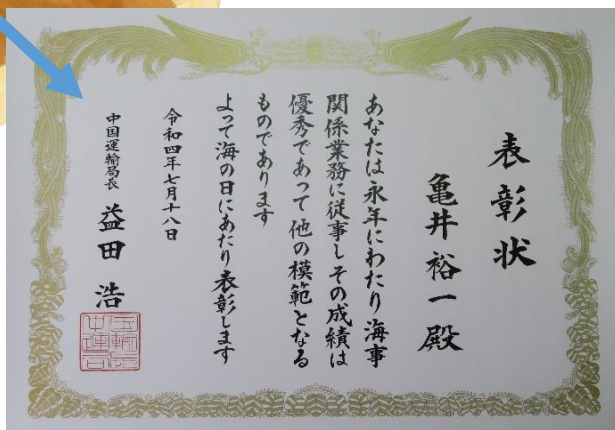 表彰状
亀井裕一殿
あなたは永年にわたり海事
関係業務に従事しその成績は
優秀であって他の模範となる
ものであります
よって海の日にあたり表彰します
令和四年七月十八日
中国運輸局長 益田浩